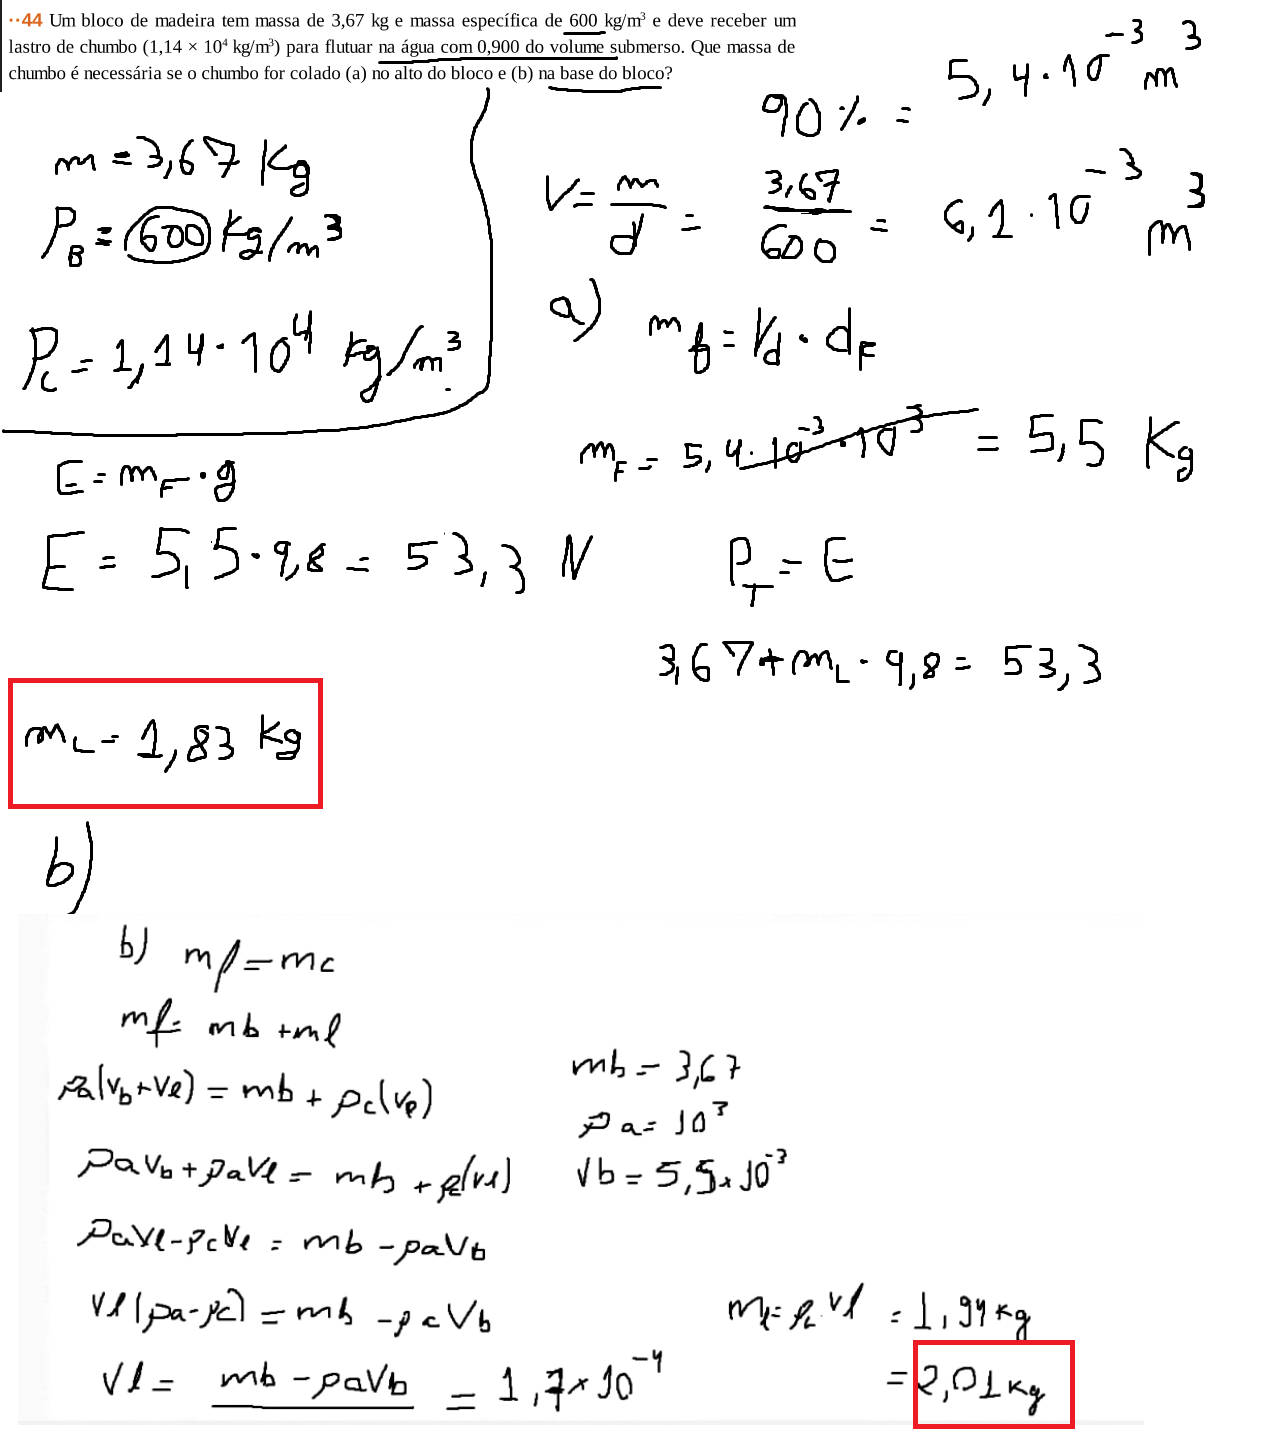 ··44 Um bloco de madeira tem massa de 3,67 kg e massa específica de 600 kg/m³ e deve receber um
lastro de chumbo (1,14 × 10⁴ kg/m³) para flutuar na água com 0,900 do volume submerso. Que massa de
chumbo é necessária se o chumbo for colado (a) no alto do bloco e (b) na base do bloco?
m = 3,67 Kg
P_B = 600 Kg/m³
P_C = 1,14·10⁴ kg/m³
90% = 5,4·10⁻³ m³
V = m/d = 3,67/600 = 6,1·10⁻³ m³
a)
m_f = Vd · d_F
m_F = 5,4·10⁻³·10³ = 5,5 Kg
E = m_F · g
E = 5,5·9,8 = 53,3 N
P_T = E
3,67 + m_L · 9,8 = 53,3
m_L = 1,83 Kg
b)
b) mf = mc
mf = mb + ml
ρa(Vb+Vl) = mb + ρc(Vl)
ρaVb + ρaVl = mb + ρc(Vl)
ρaVl - ρcVl = mb - ρaVb
Vl(ρa-ρc) = mb - ρcVb
Vl = mb - ρaVb = 1,7×10⁻⁴
mb = 3,67
ρa = 10³
Vb = 5,5×10⁻³
ml = ρL · Vl = 1,94 kg
= 2,01 kg